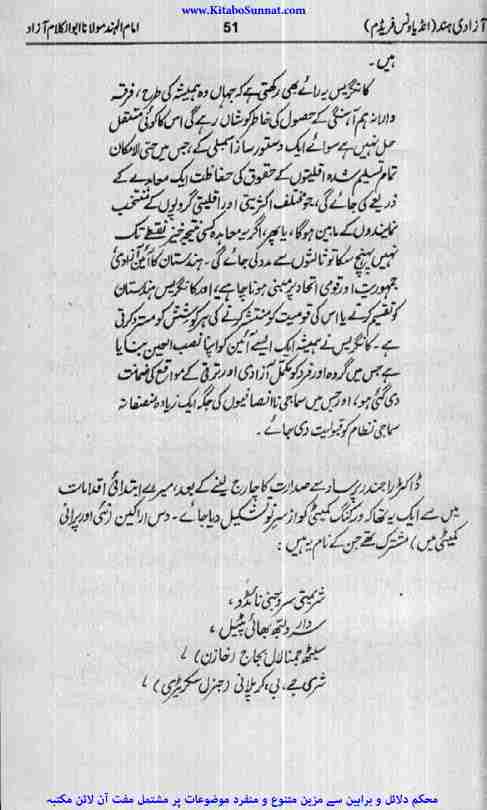 www.KitaboSunnat.com
آزادی ہند (انڈیا ونس فریڈم)
51
امام الہند مولانا ابوالکلام آزاد
ہیں۔
کانگریس یہ رائے بھی رکھتی ہے کہ جہاں وہ ہمیشہ کی طرح، فرقہ
وارانہ ہم آہنگی کے حصول کی خاطر کوشاں رہے گی اس کا کوئی مستقل
حل نہیں ہے سوائے ایک دستور ساز اسمبلی کے، جس میں حتی الامکان
تمام تسلیم شدہ اقلیتوں کے حقوق کی حفاظت ایک معاہدے کے
ذریعے کی جائے گی، جو مختلف اکثریتی اور اقلیتی گروپوں کے منتخب
نمایندوں کے مابین ہوگا، یا پھر، اگر یہ معاہدہ کسی نتیجہ خیز نقطے تک
نہیں پہنچ سکا تو ثالثوں سے مدد لی جائے گی۔ ہندستان کا آئین آزادی
جمہوریت اور قومی اتحاد پر مبنی ہونا چاہیے، اور کانگریس ہندستان
کو تقسیم کرنے یا اس کی قومیت کو منتشر کرنے کی ہر کوشش کو مسترد کرتی
ہے۔ کانگریس نے ہمیشہ ایک ایسے آئین کو اپنا نصب العین بنایا
ہے جس میں گروہ اور فرد کو مکمل آزادی اور ترقی کے مواقع کی ضمانت
دی گئی ہو، اور جس میں سماجی ناانصافیوں کی جگہ ایک زیادہ منصفانہ
سماجی نظام کو قبولیت دی جائے۔
ڈاکٹر راجندر پرساد سے صدارت کا چارج لینے کے بعد، میرے ابتدائی اقدامات
میں سے ایک یہ تھا کہ ورکنگ کمیٹی کو از سر نو تشکیل دیا جائے۔ دس اراکین (نئی اور پرانی
کمیٹی میں) مشترک تھے جن کے نام یہ ہیں:
شریمتی سروجنی نائڈو،
سردار ولبھ بھائی پٹیل،
سیٹھ جمنا لال بجاج (خازن)
شری جے، بی، کرپلانی (جنرل سکریٹری)
محکم دلائل و براہین سے مزین متنوع و منفرد موضوعات پر مشتمل مفت آن لائن مکتبہ